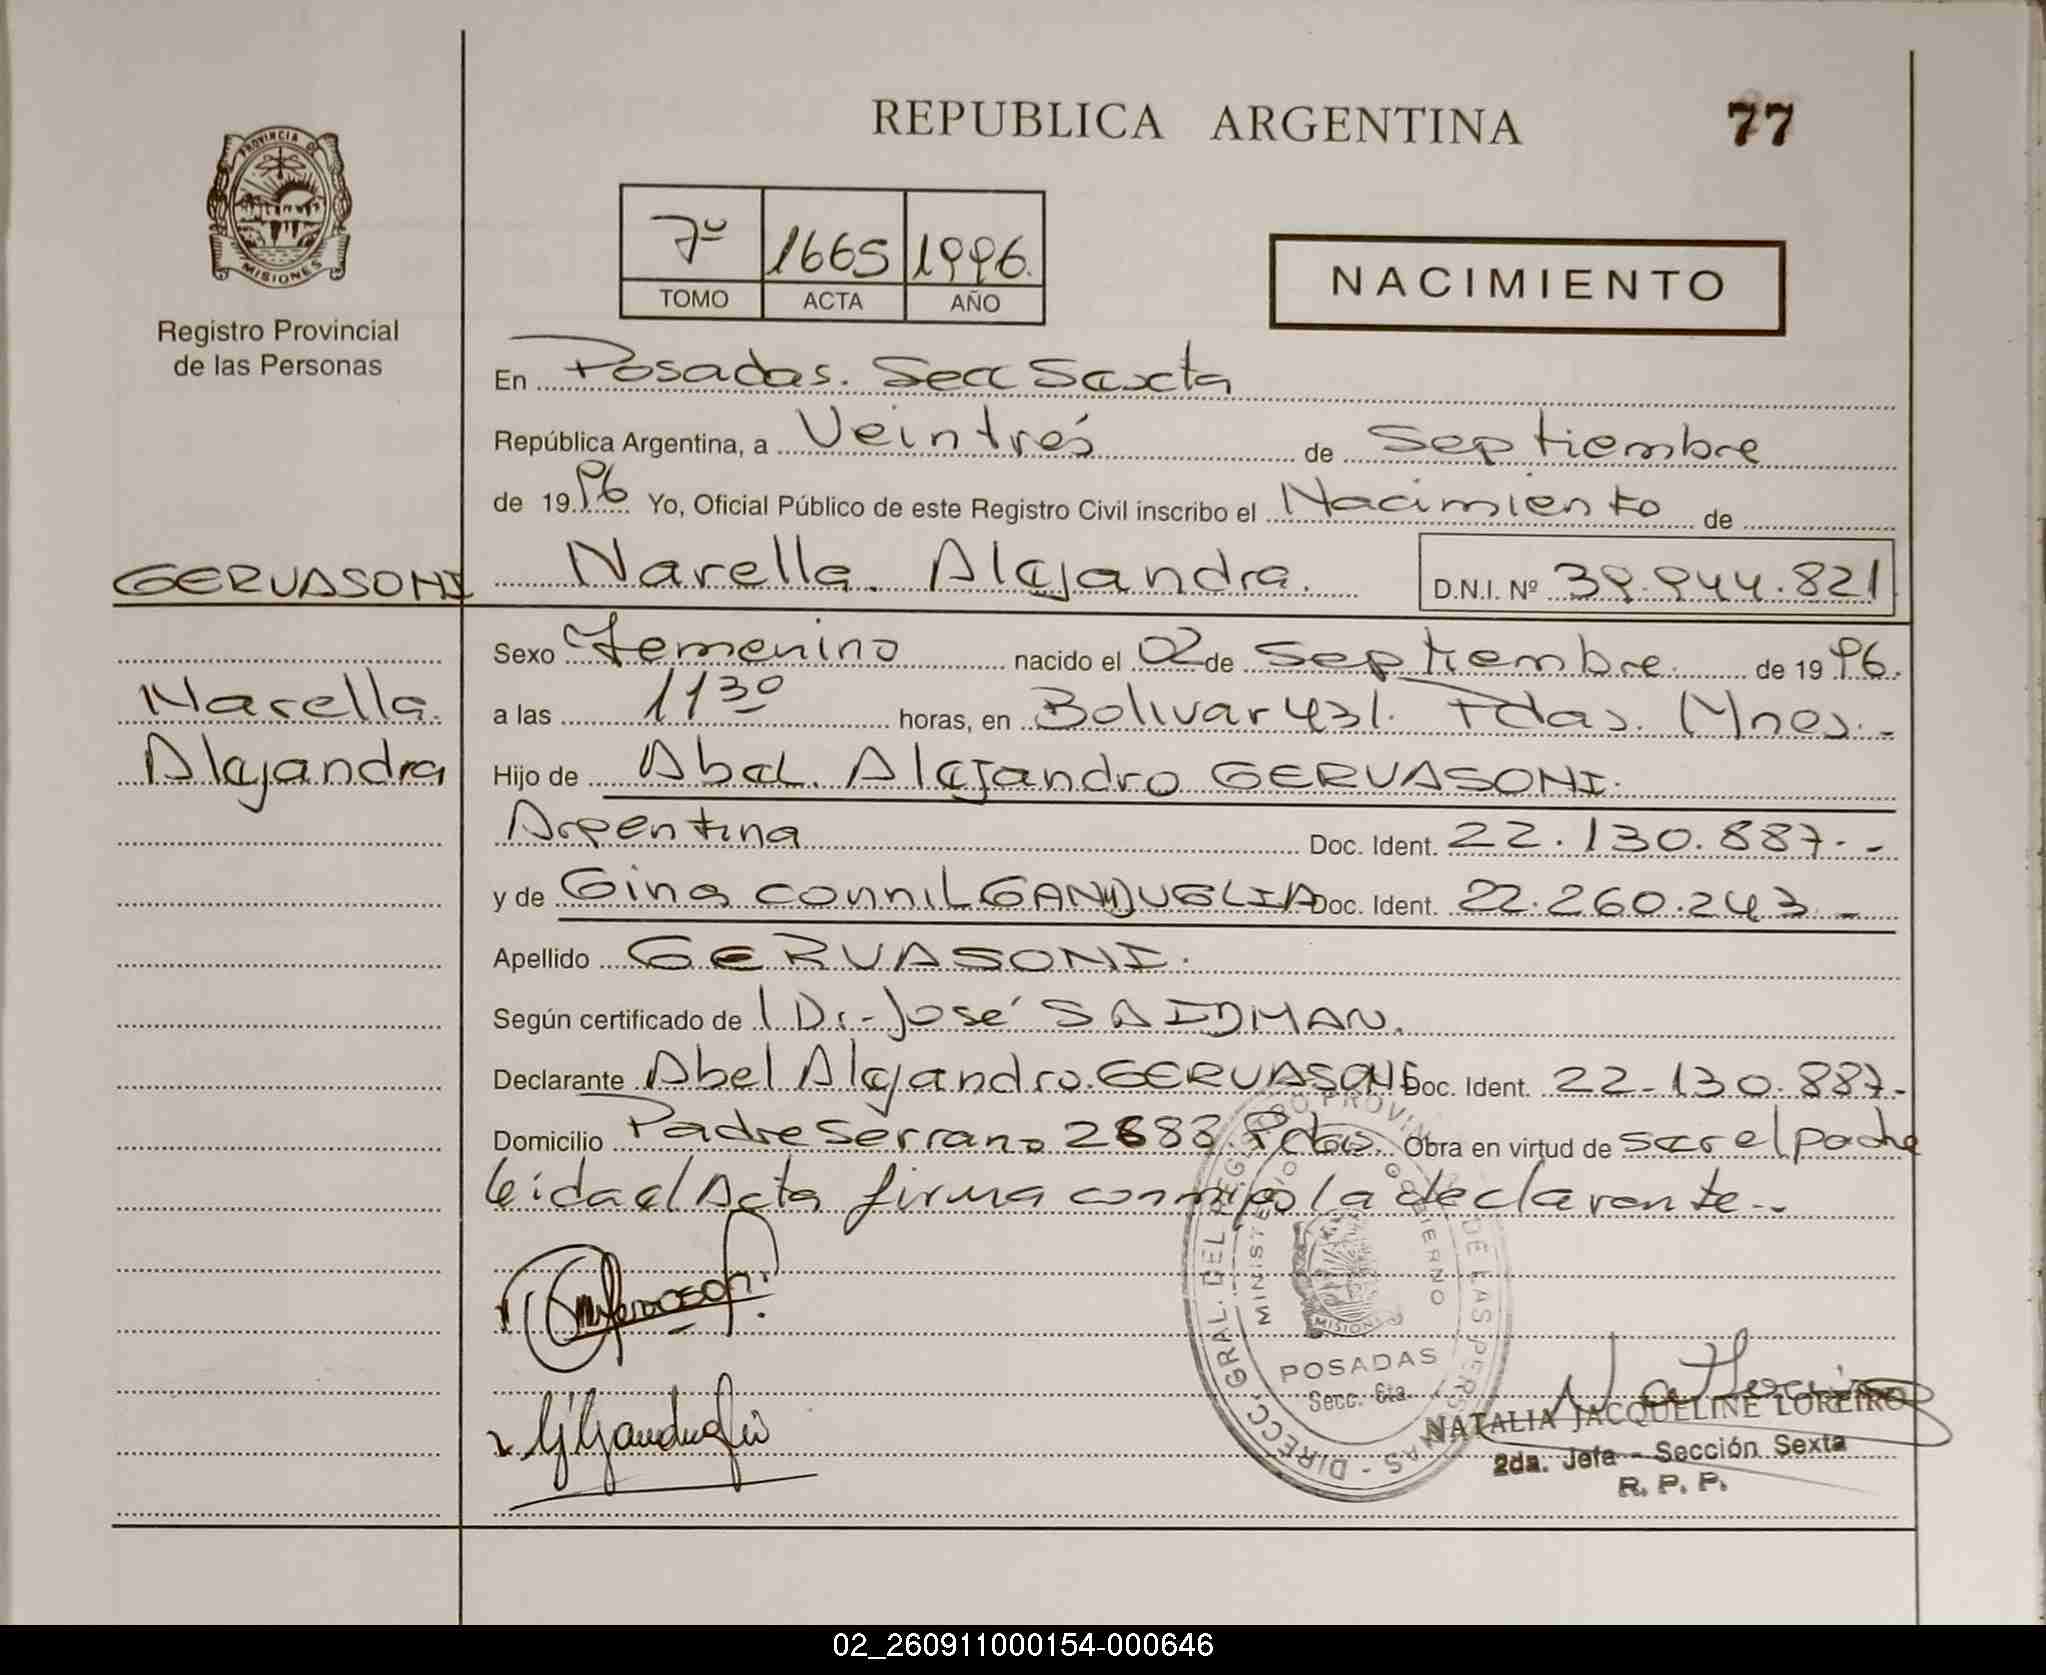 REPUBLICA ARGENTINA
77
PROVINCIA DE
MISIONES
Registro Provincial
de las Personas
7º 1665 1996.
TOMO ACTA AÑO
NACIMIENTO
En Posadas. Secc Sexta
República Argentina, a Veintres de Septiembre
de 1996 Yo, Oficial Público de este Registro Civil inscribo el Nacimiento de
GERVASONI
Narella. Alejandra. D.N.I. Nº 39.944.821
Sexo Femenino nacido el 02 de Septiembre. de 1996.
Narella.
a las 11 30 horas, en Bolivar 431. Pdas. Mnes.-
Alejandra
Hijo de Abel. Alejandro GERVASONI.
Argentina Doc. Ident. 22.130.887.-
y de Gina GANDUGLIA Doc. Ident. 22.260.243.-
Apellido GERVASONI.
Según certificado de l Dr.-José SAIDMAN.
Declarante Abel Alejandro.GERVASONI Doc. Ident. 22-130.887.-
Domicilio Padre Serrano 2688. Pdas. Obra en virtud de ser el padre
leida el Acta firma conmigo la declarante.-
DIRECC. GRAL. DEL REGISTRO PROVINCIAL DE LAS PERSONAS -
MINISTERIO DE GOBIERNO
MISIONES
POSADAS
Secc. 6ta.
NATALIA JACQUELINE LOREIRO
2da. Jefa - Sección Sexta
R. P. P.
02_260911000154-000646